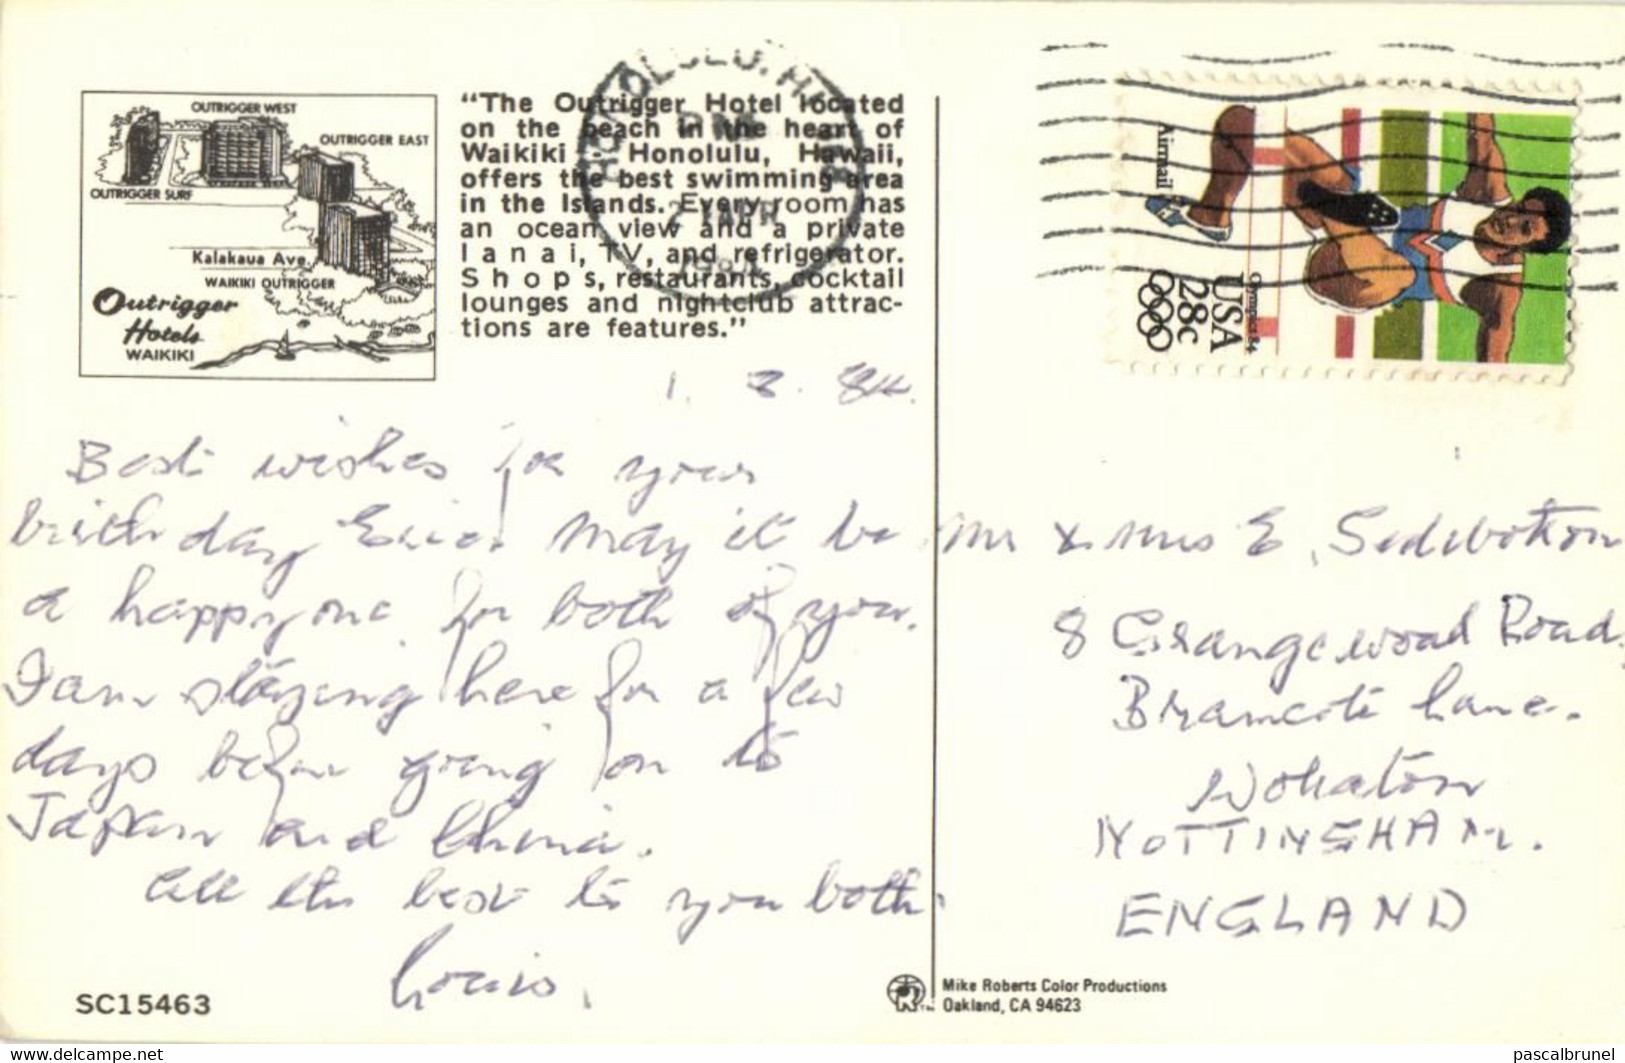 OUTRIGGER WEST
OUTRIGGER EAST
OUTRIGGER SURF
Kalakaua Ave.
WAIKIKI OUTRIGGER
Outrigger
Hotels
WAIKIKI
"The Outrigger Hotel located
on the beach in the heart of
Waikiki Honolulu, Hawaii,
offers the best swimming area
in the Islands. Every room has
an ocean view and a private
lanai, TV, and refrigerator.
Shops, restaurants, cocktail
lounges and nightclub attrac-
tions are features."
HONOLULU, HI
PM
APR
Airmail
Olympics 84
USA
28c
84.
Best wishes for your
birthday Eric. May it be
a happy one for both of you.
I am staying here for a few
days before going on to
Japan and China.
All the best to you both.
Louis.
Mr & Mrs E. Sidebottom
8 Grangewood Road,
Bramcote Lane.
Wollaton
NOTTINGHAM.
ENGLAND
SC15463
Mike Roberts Color Productions
Oakland, CA 94623
www.delcampe.net
pascalbrunel